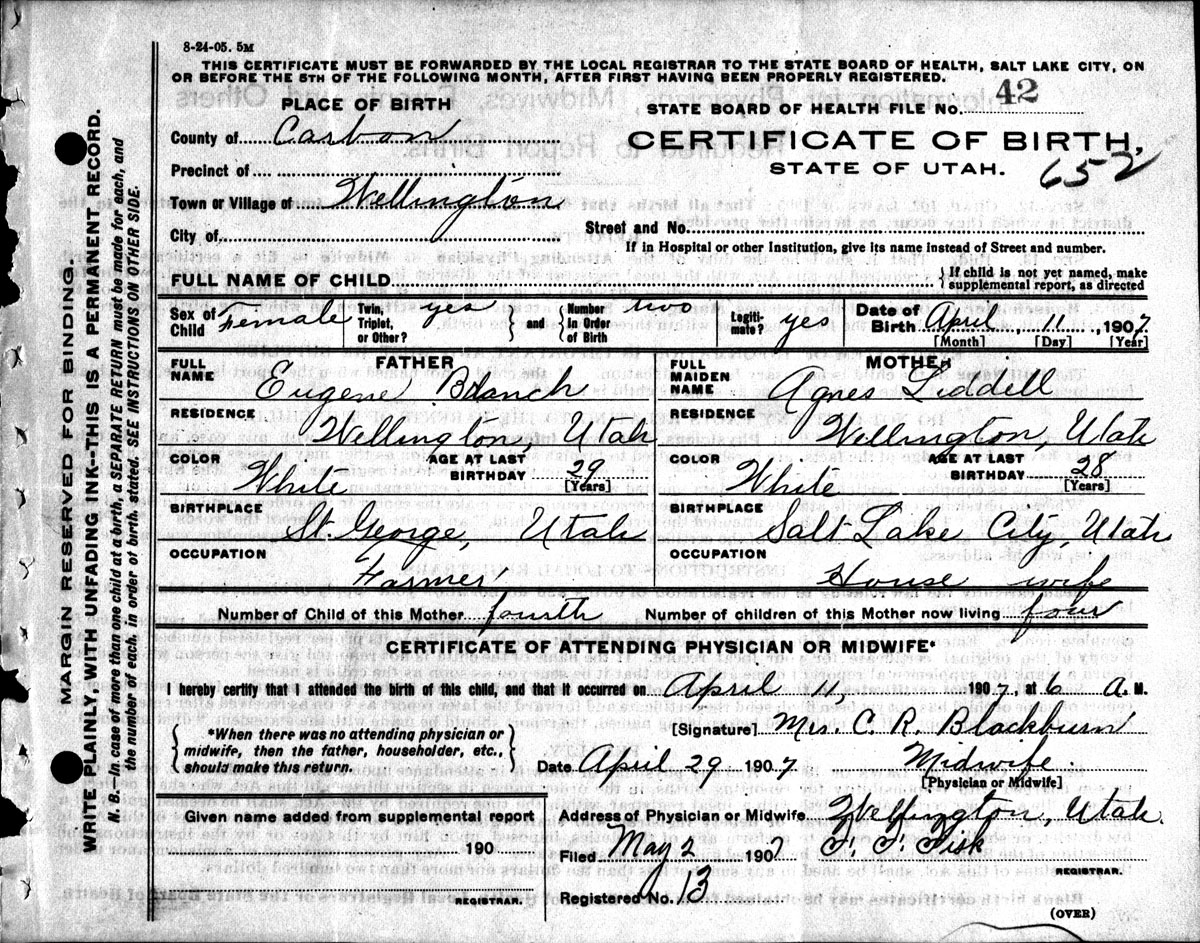 8-24-05. 5M
THIS CERTIFICATE MUST BE FORWARDED BY THE LOCAL REGISTRAR TO THE STATE BOARD OF HEALTH, SALT LAKE CITY, ON
OR BEFORE THE 5TH OF THE FOLLOWING MONTH, AFTER FIRST HAVING BEEN PROPERLY REGISTERED.
PLACE OF BIRTH
STATE BOARD OF HEALTH FILE No. 42
County of Carbon
CERTIFICATE OF BIRTH,
STATE OF UTAH.
652
Precinct of
Town or Village of Wellington
City of
Street and No.
If in Hospital or other Institution, give its name instead of Street and number.
FULL NAME OF CHILD
{If child is not yet named, make supplemental report, as directed
Sex of Child Female Twin, Triplet, or Other? yes } and { Number In Order of Birth two Legiti-mate? yes Date of Birth April 11, 1907
[Month] [Day] [Year]
FATHER
MOTHER
FULL NAME Eugene Branch
FULL MAIDEN NAME Agnes Liddell
RESIDENCE Wellington, Utah
RESIDENCE Wellington Utah
COLOR White AGE AT LAST BIRTHDAY 29 [Years]
COLOR White AGE AT LAST BIRTHDAY 28 [Years]
BIRTHPLACE St. George, Utah
BIRTHPLACE Salt Lake City, Utah
OCCUPATION Farmer
OCCUPATION House wife
Number of Child of this Mother fourth Number of children of this Mother now living four
CERTIFICATE OF ATTENDING PHYSICIAN OR MIDWIFE*
I hereby certify that I attended the birth of this child, and that it occurred on April 11, 1907, at 6 A. M.
{ *When there was no attending physician or midwife, then the father, householder, etc., should make this return. }
[Signature] Mrs. C. R. Blackburn
Date April 29 1907 Midwife.
[Physician or Midwife]
Given name added from supplemental report
190
REGISTRAR.
Address of Physician or Midwife Wellington, Utah.
Filed May 2 1907 F. F. Fisk
REGISTRAR.
Registered No. 13
(OVER)
MARGIN RESERVED FOR BINDING
WRITE PLAINLY, WITH UNFADING INK--THIS IS A PERMANENT RECORD.
N. B.—In case of more than one child at a birth, a SEPARATE RETURN must be made for each, and
the number of each, in order of birth, stated. SEE INSTRUCTIONS ON OTHER SIDE.